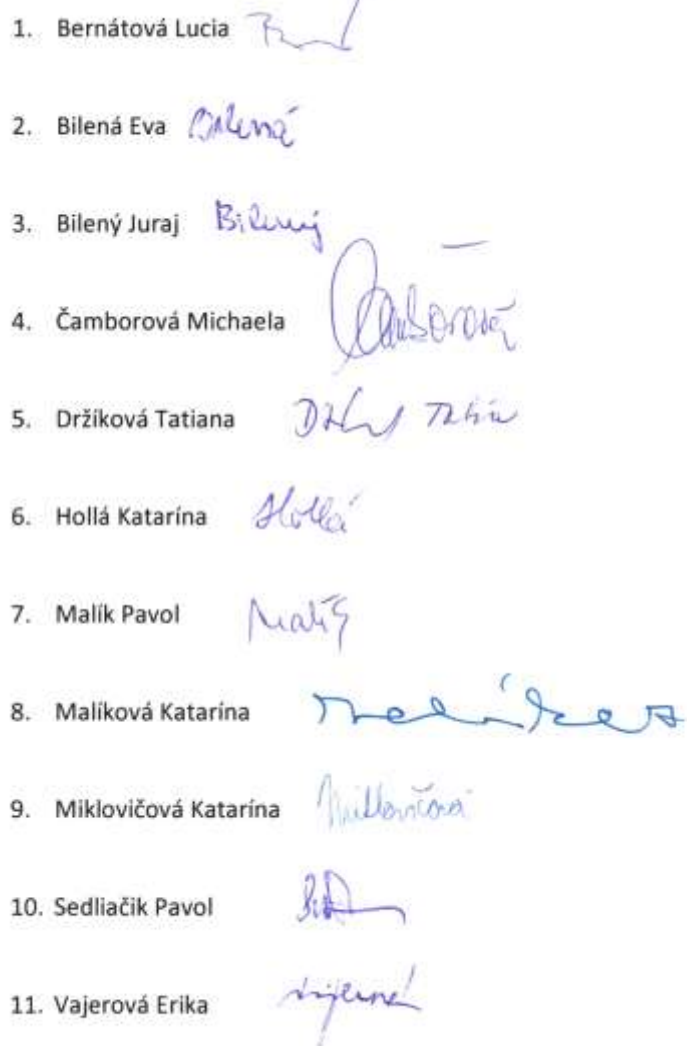 1. Bernátová Lucia
2. Bilená Eva Bilená
3. Bilený Juraj Bilený
4. Čamborová Michaela Čamborová
5. Držíková Tatiana
6. Hollá Katarína Hollá
7. Malík Pavol Malík
8. Malíková Katarína
9. Miklovičová Katarína Miklovičová
10. Sedliačik Pavol
11. Vajerová Erika